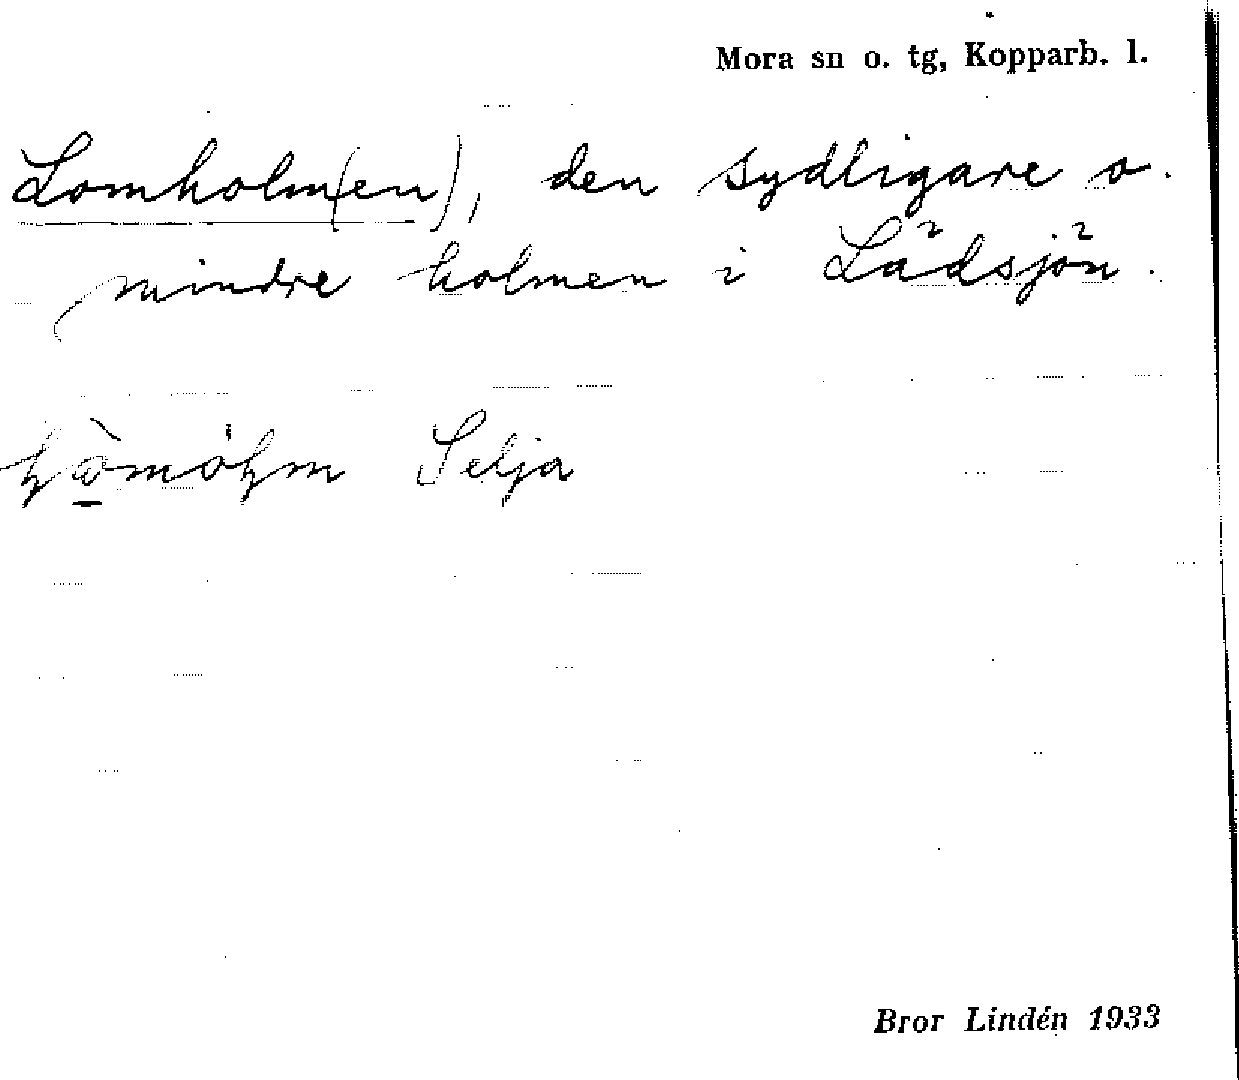 Mora sn o. tg, Kopparb. l.
Lomholm(en), den sydligare o.
mindre holmen i Lädsjön.
Selja
Bror Lindén 1933